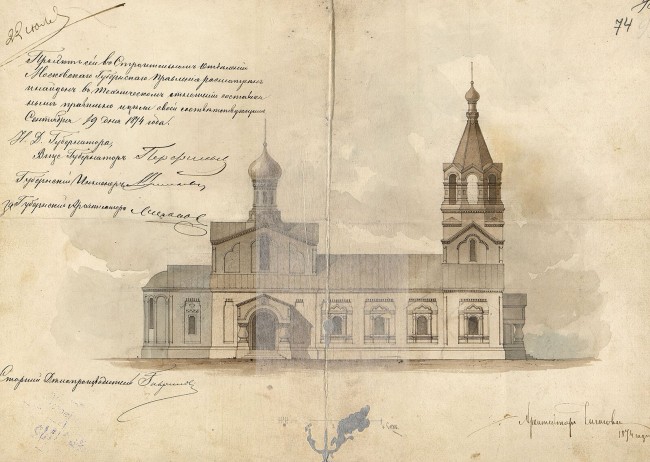 74
Проектъ сей въ Строительномъ Отделенiи
Московскаго Губернскаго Правленiя разсмотренъ
и найденъ въ Техническомъ отношенiи составлен-
нымъ правильно и цели своей соответствующимъ
Сентября 19 дня 1874 года.
И. Д. Губернатора,
Вице Губернаторъ
Губернскiй Инженеръ
Губернскiй Архитекторъ
Старшiй Делопроизводитель Гавриловъ
Архитекторъ
1874 года